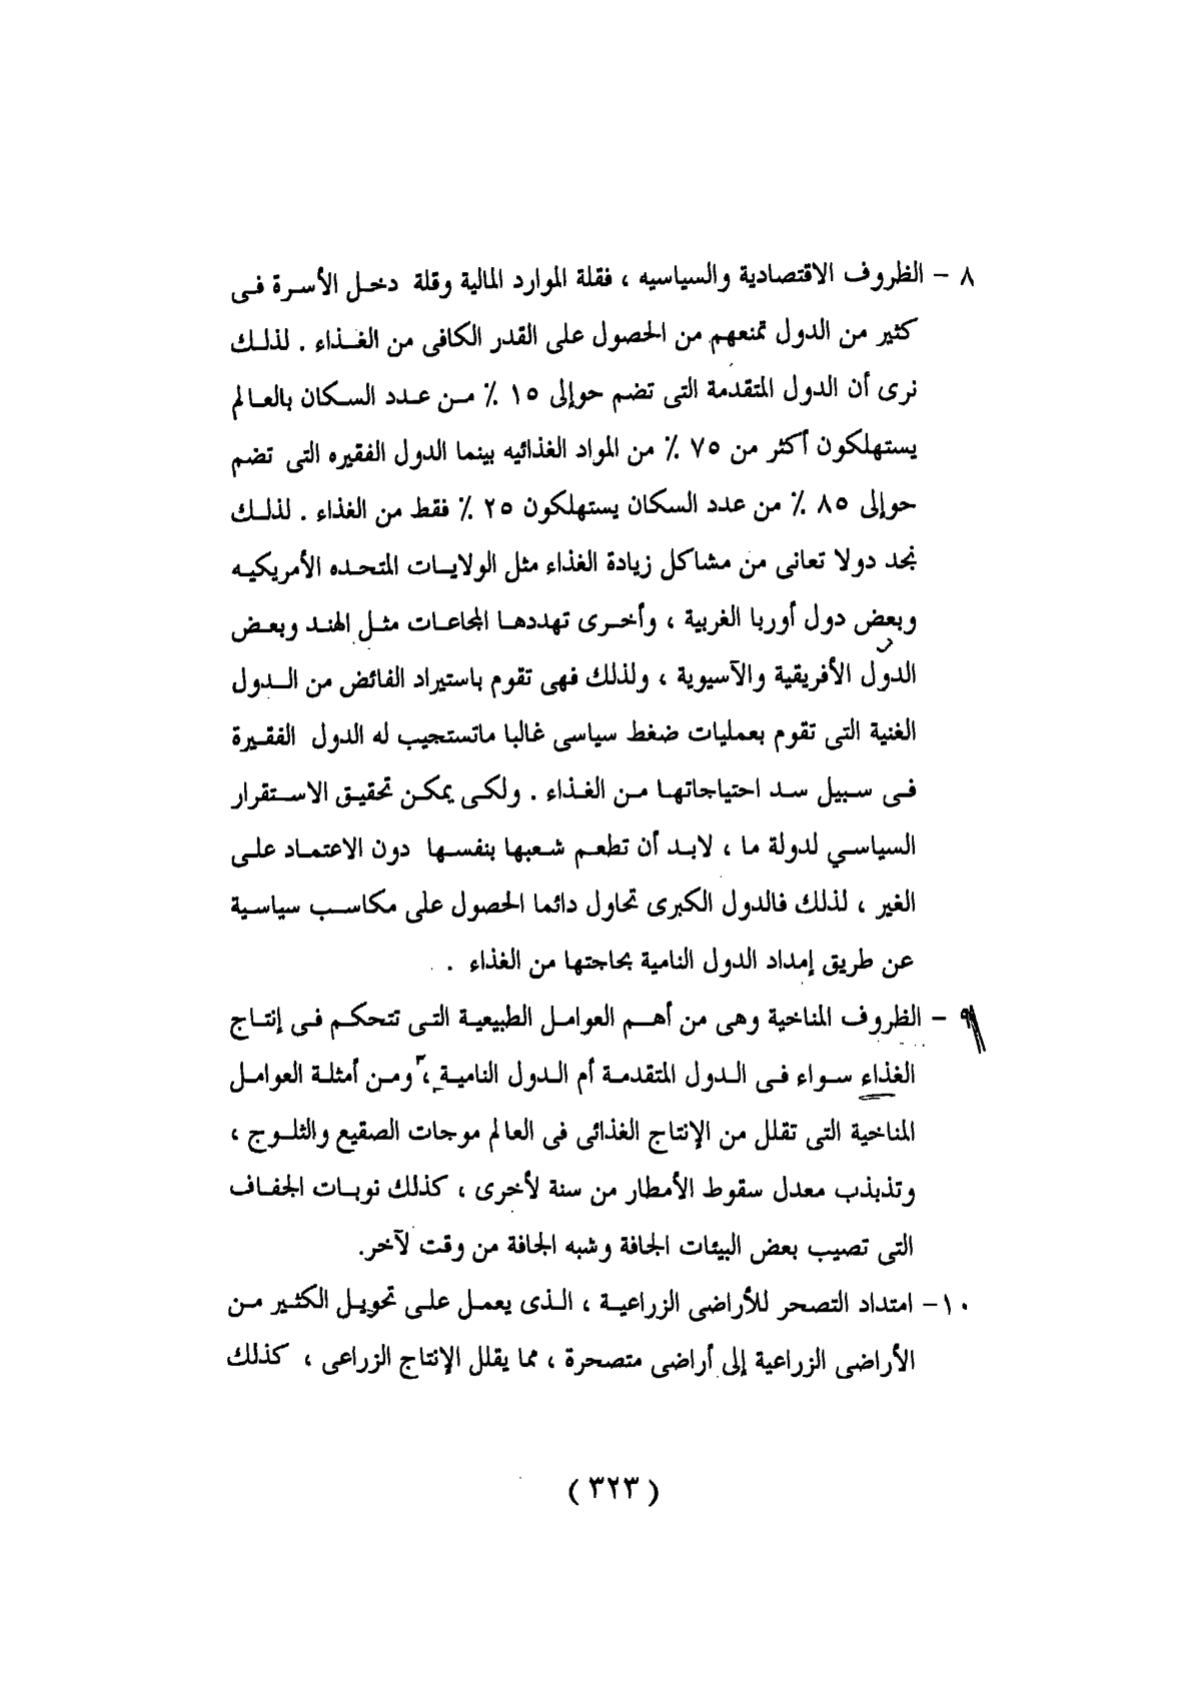 ٨ – الظروف الاقتصادية والسياسيه ، فقلة الموارد المالية وقلة دخل الأسرة فى
كثير من الدول تمنعهم من الحصول على القدر الكافى من الغذاء . لذلك
نرى أن الدول المتقدمة التى تضم حوإلى ١٥ ٪ من عدد السكان بالعالم
يستهلكون أكثر من ٧٥ ٪ من المواد الغذائيه بينما الدول الفقيره التى تضم
حوإلى ٨٥ ٪ من عدد السكان يستهلكون ٢٥ ٪ فقط من الغذاء . لذلك
نجد دولا تعانى من مشاكل زيادة الغذاء مثل الولايات المتحده الأمريكيه
وبعض دول أوربا الغربية ، وأخرى تهددها المجاعات مثل الهند وبعض
الدول الأفريقية والآسيوية ، ولذلك فهى تقوم باستيراد الفائض من الدول
الغنية التى تقوم بعمليات ضغط سياسى غالبا ماتستجيب له الدول الفقيرة
فى سبيل سد احتياجاتها من الغذاء . ولكى يمكن تحقيق الاستقرار
السياسي لدولة ما ، لابد أن تطعم شعبها بنفسها دون الاعتماد على
الغير ، لذلك فالدول الكبرى تحاول دائما الحصول على مكاسب سياسية
عن طريق إمداد الدول النامية بحاجتها من الغذاء .
٩ – الظروف المناخية وهى من أهم العوامل الطبيعية التى تتحكم فى إنتاج
الغذاء سواء فى الدول المتقدمة أم الدول النامية ، ومن أمثلة العوامل
المناخية التى تقلل من الإنتاج الغذائى فى العالم موجات الصقيع والثلوج ،
وتذبذب معدل سقوط الأمطار من سنة لأخرى ، كذلك نوبات الجفاف
التى تصيب بعض البيئات الجافة وشبه الجافة من وقت لآخر.
١٠– امتداد التصحر للأراضى الزراعية ، الذى يعمل على تحويل الكثير من
الأراضى الزراعية إلى أراضى متصحرة ، مما يقلل الإنتاج الزراعى ، كذلك
( ٣٢٣ )